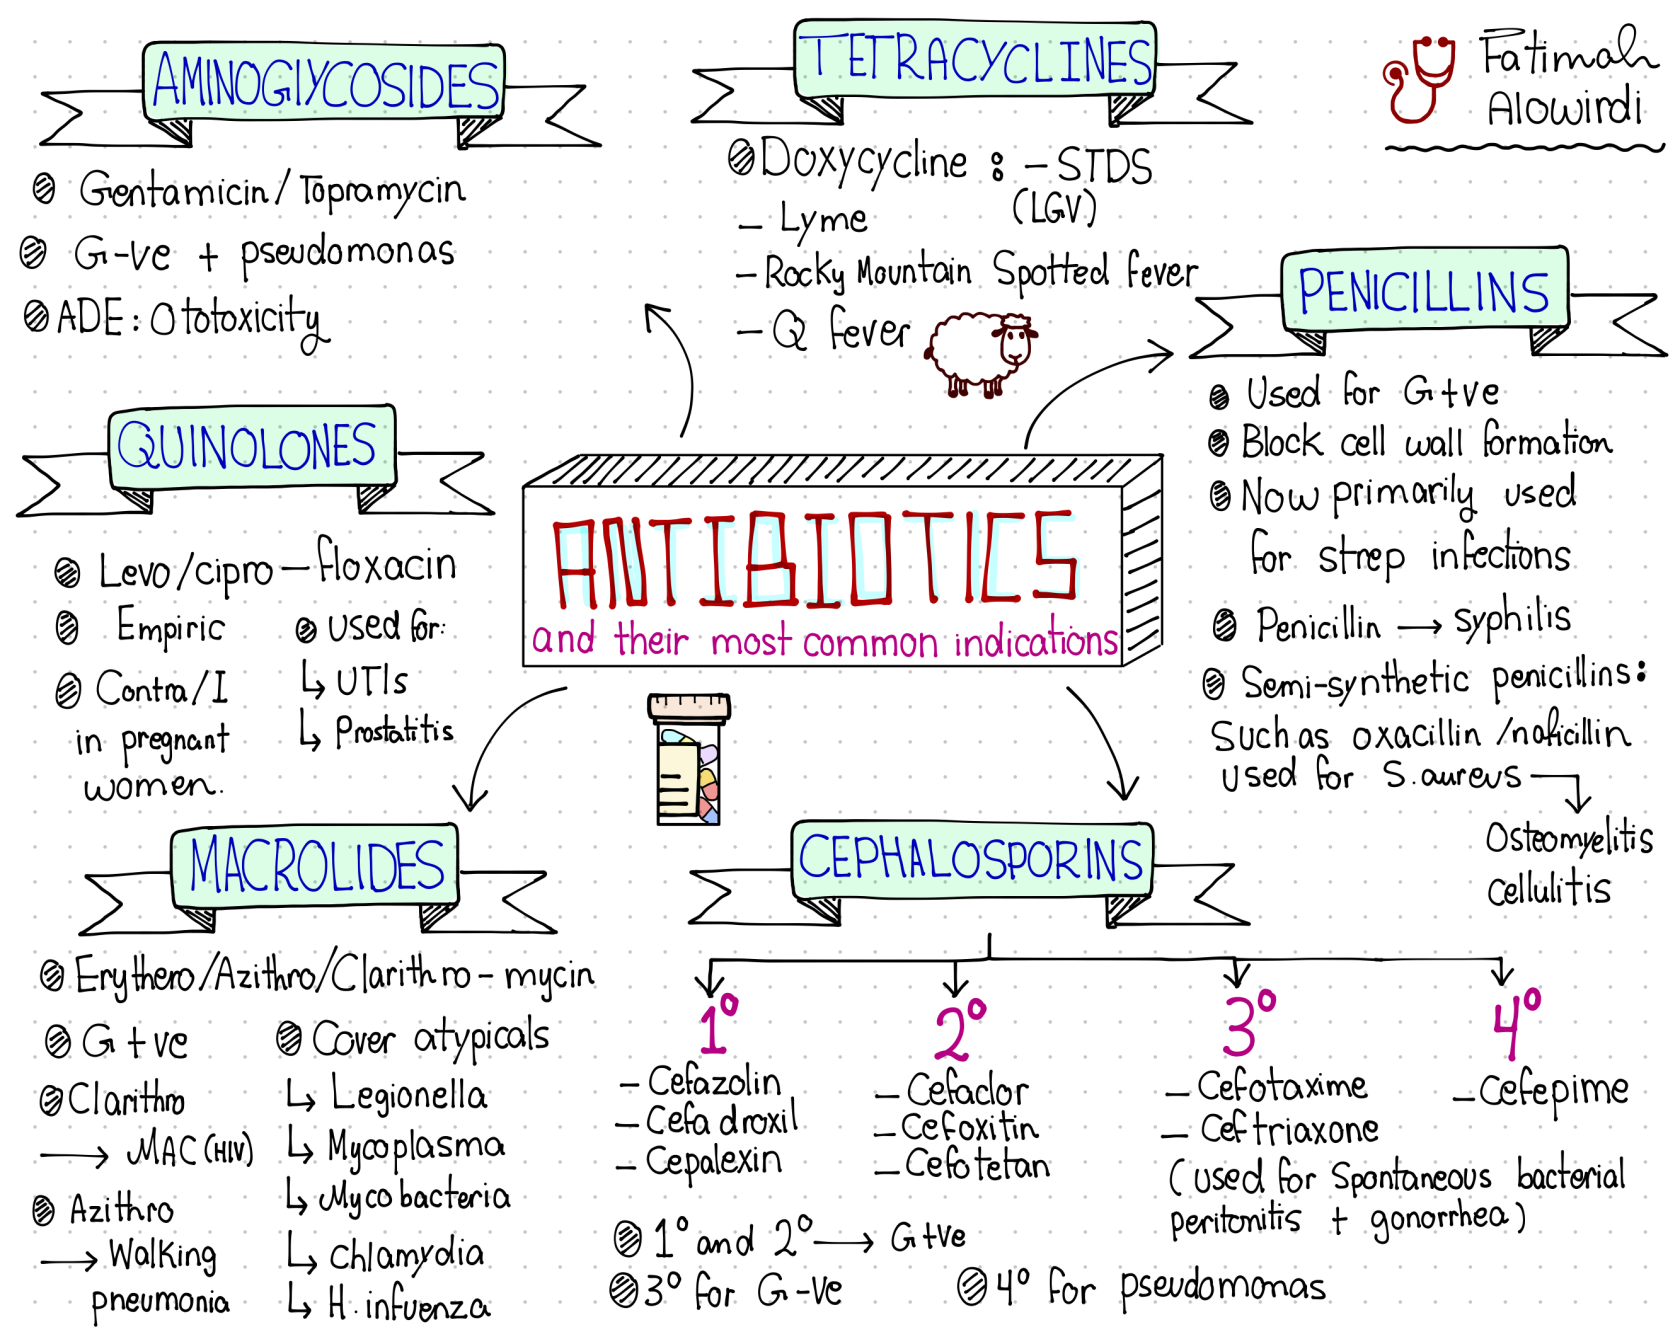 AMINOGLYCOSIDES
Gentamicin/Topramycin
G-ve + pseudomonas
ADE: Ototoxicity
TETRACYCLINES
Doxycycline : - STDS
(LGV)
- Lyme
- Rocky Mountain Spotted fever
- Q fever
Fatimah
Alowirdi
PENICILLINS
Used for G+ve
Block cell wall formation
Now primarily used
for strep infections
Penicillin → syphilis
Semi-synthetic penicillins:
Such as oxacillin/naficillin
used for S.aureus
Osteomyelitis
cellulitis
QUINOLONES
Levo/cipro-floxacin
Empiric
Contra/I
in pregnant
women.
used for:
↳ UTIs
↳ Prostatitis
ANTIBIOTICS
and their most common indications
MACROLIDES
Erythero/Azithro/Clarithro-mycin
G+ve
Clarithro
→ MAC (HIV)
Azithro
→ Walking
pneumonia
Cover atypicals
↳ Legionella
↳ Mycoplasma
↳ Mycobacteria
↳ chlamydia
↳ H.infuenza
CEPHALOSPORINS
1°
- Cefazolin
- Cefadroxil
- Cepalexin
2°
- Cefaclor
- Cefoxitin
- Cefotetan
3°
- Cefotaxime
- Ceftriaxone
(used for Spontaneous bacterial
peritonitis + gonorrhea)
4°
- Cefepime
1° and 2° → G+ve
3° for G-ve
4° for pseudomonas